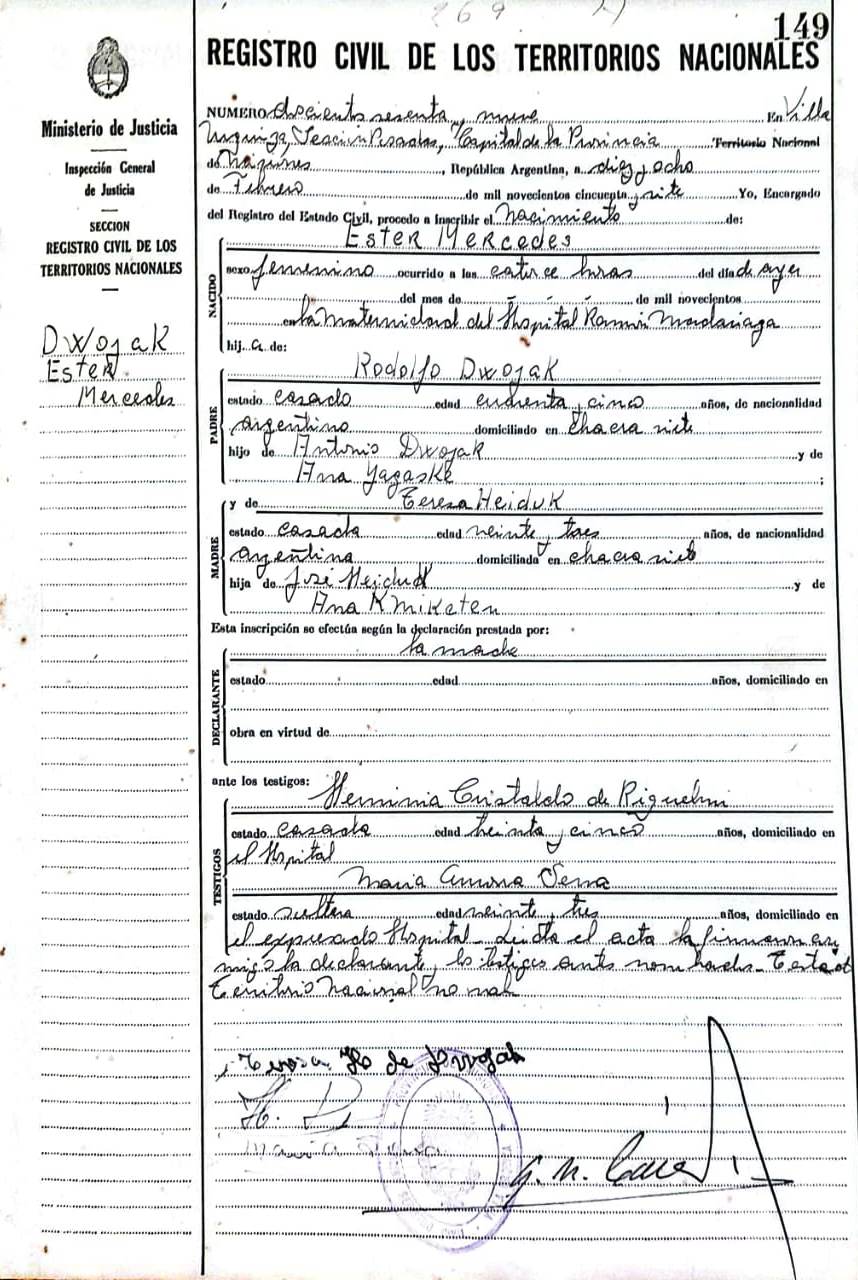 269
149
REGISTRO CIVIL DE LOS TERRITORIOS NACIONALES
Ministerio de Justicia
Inspección General
de Justicia
SECCION
REGISTRO CIVIL DE LOS
TERRITORIOS NACIONALES
Dwojak
Ester
Mercedes
NUMERO docientos sesenta y nueve En Villa
Urquiza, Sección Posadas, Capital de la Provincia Territorio Nacional
de Misiones, República Argentina, a diez y ocho
de Febrero de mil novecientos cincuenta y siete Yo, Encargado
del Registro del Estado Civil, procedo a inscribir el nacimiento de:
NACIDO
Ester Mercedes
sexo femenino ocurrido a las catorce horas del día de ayer
del mes de de mil novecientos
en la Maternidad del Hospital Ramón Madariaga
hij a de:
PADRE
Rodolfo Dwojak
estado casado edad cuarenta y cinco años, de nacionalidad
argentino domiciliado en chacra siete
hijo de Antonio Dwojak y de
Ana Yagaske ;
MADRE
y de Teresa Heiduk
estado casada edad veinte y tres años, de nacionalidad
argentina domiciliada en chacra siete
hija de José Heiduk y de
Ana Kmiketen
Esta inscripción se efectúa según la declaración prestada por:
DECLARANTE
la madre
estado edad años, domiciliado en
obra en virtud de
ante los testigos:
TESTIGOS
Herminia Cristaldo de Riquelmi
estado casada edad treinta y cinco años, domiciliado en
el Hospital
Maria Amora Serra
estado soltera edad veinte y tres años, domiciliado en
el expresado Hospital. Leida el acta la firmaron con
migo la declarante y los testigos antes nombrados. Testado
Territorio Nacional no vale
Teresa H de Dwojak
H.
Maria